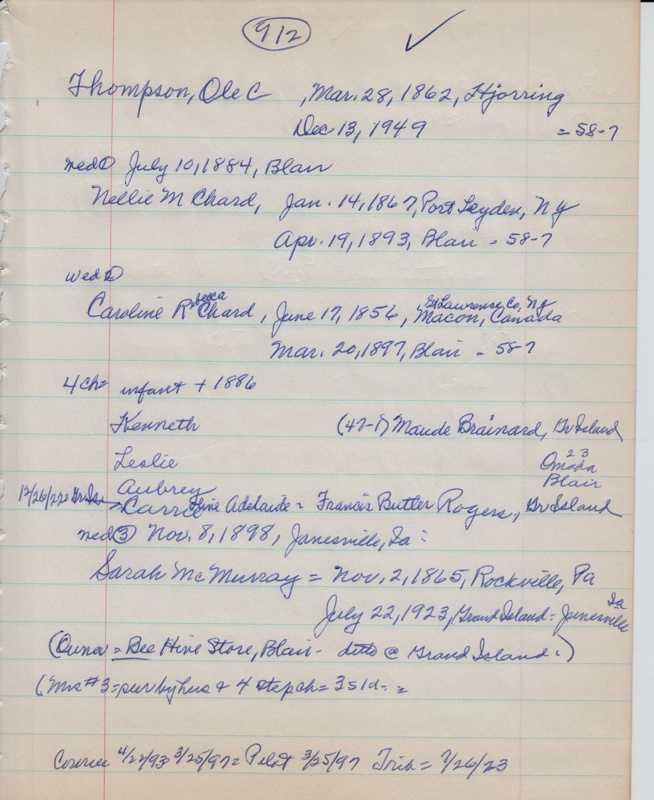 912 ✓
Thompson, Ole C , Mar. 28, 1862, Hjorring
Dec 13, 1949 = 58-7
wed ① July 10, 1884, Blair
Nellie M Chard, Jan. 14, 1867, Port Leyden, Ny
Apr. 19, 1893, Blair - 58-7
wed 2
Caroline Rebecca Chard, June 17, 1856, St Lawrence Co, Ny
Macon, Canada
Mar. 20, 1897, Blair - 58-7
4 ch= infant + 1886
Kenneth (47-1) Maude Brainard, Gr Island
Leslie 23 Omaha
Aubrey Blair
12/26/22 = Gr Is = Carrie Adelaide = Francis Butler Rogers, Gr Island
wed ③ Nov. 8, 1898, Janesville, Ia:
Sarah McMurray = Nov. 2, 1865, Rockville, Pa
July 22, 1923, Grand Island = Janesville Ia
(Owner = Bee Hive Store, Blair - ditto @ Grand Island.)
(Mrs #3 = sur by hus & 4 step ch = 3s 1d. =
Courier 4/22/93 3/25/97 = Pilot 3/25/97 Trib = 7/26/23